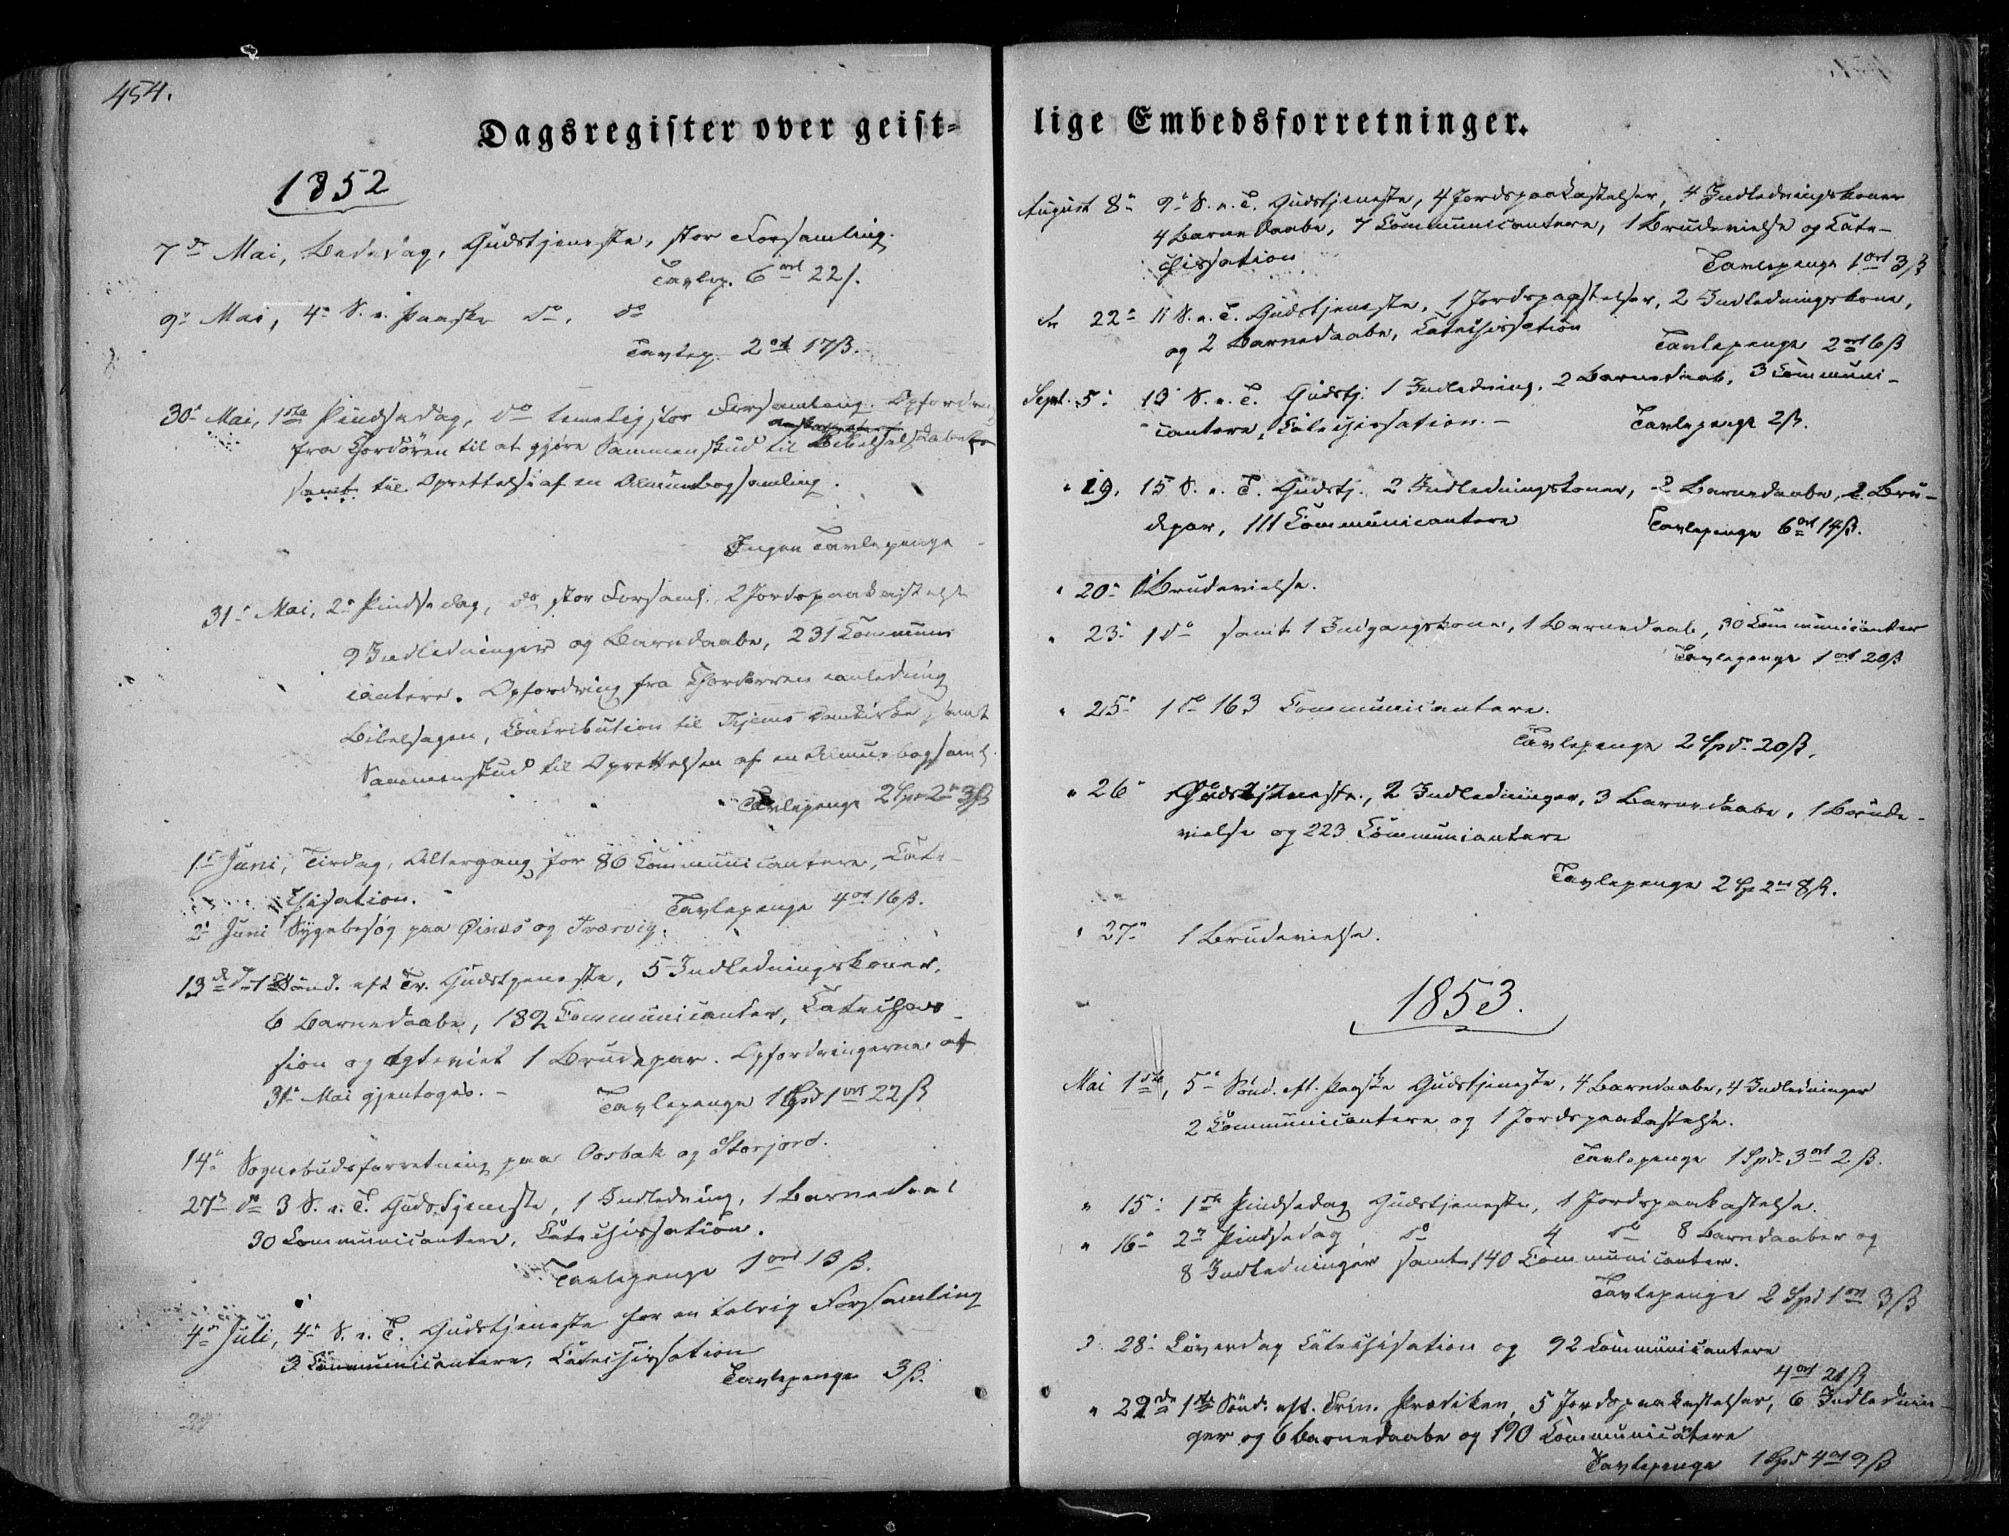 454.
Dagsregister over geist-
1852
7de Mai, Bededag, Gudstjeneste, stor Forsamling.
Tavlep. 6 ort 22 s.
9de Mai, 4de S. e. Paaske do, do
Tavlep. 2 ort 17 ß.
30te Mai, 1ste Pindsedag, do temelig stor Forsamling. Opfordring
fra Chordören til at gjöre Sammenskud til Bibelselskabet
samt til Oprettelse af en Almuebogsamling.
Ingen Tavlepenge
31te Mai, 2den Pindsedag, do stor Forsaml. 2 Jordspaakastelse
9 Indledninger og Barnedaabe, 231 Communi
cantere. Opfordring fra Chordörren i anledning
Bibelsagen, Contribution til Throms Domkirke samt
Sammenskud til Oprettelsen af en Almuebogsaml.
Tavlepenge 2 Spd 2 ort 3 ß
1ste Juni, Tirsdag, Altergang for 86 Communicantere, Cate-
chisation.
Tavlepenge 4 ort 16 ß.
2den Juni Sygebesög paa Øinæs og Tværvig.
13de do 1ste Sönd. eft Tr. Gudstjeneste, 5 Indledningskoner,
6 Barnedaabe, 132 Communicanter, Catechisa-
sion og Egteviet 1 Brudepar. Opfordringerne af
31te Mai gjentoges. -
Tavlepenge 1 Spd 1 ort 22 ß
14de Sognebudsforretning paa Oosbak og Storjord.
27de do 3 S. e. T. Gudstjeneste, 1 Indledning, 1 Barnedaab
30 Communicantere, Catechissation.
Tavlepenge 1 ort 13 ß.
4de Juli, 4de S. e. T. Gudstjeneste for en talrig Forsamling
3 Communicantere, Catechissation
Tavlepenge 3 ß.
lige Embedsforretninger.
August 8de 9de S. e. T. Gudstjeneste, 4 Jordspaakastelser, 4 Indledningskoner
4 Barnedaabe, 7 Communicantere, 1 Brudevielse og Cate-
chissation
Tavlepenge 1 ort 3 ß
do 22de 11 S. e. T. Gudstjeneste, 1 Jordspaastelser, 2 Indledningskone,
og 2 Barnedaabe, Catechissation
Tavlepenge 2 ort 6 ß
Sept. 5: 13 S. e. T. Gudstj. 1 Indledning, 2 Barnedaab, 3 Communi-
cantere, Catechissation. -
Tavlepenge 2 ß.
" 19. 15 S. e. T. Gudstj. 2 Indledningskoner, 2 Barnedaabe, 2 Bru-
depar, 111 Communicantere
Tavlepenge 6 ort 14 ß.
" 20de 1 Brudevielse.
" 23de 1 do samt 1 Indgangskone, 1 Barnedaab, 30 Communicanter
Tavlepenge 1 ort 20 ß
" 25de 1 do 163 Communicantere.
Tavlepenge 2 Spd. 20 ß.
" 26de Gudstjeneste, 2 Indledninger, 3 Barnedaabe, 1 Brude-
vielse og 223 Communicantere
Tavlepenge 2 Sp 2 ort 8 ß.
" 27de 1 Brudevielse.
1853.
Mai 1ste, 5te Sönd. eft. Paaske Gudstjeneste, 4 Barnedaabe, 4 Indledninger
2 Communicantere og 1 Jordspaakastelse.
Tavlepenge 1 Spd. 3 ort 2 ß.
" 15: 1ste Pindsedag Gudstjeneste, 1 Jordspaakastelse.
" 16de 2den Pindsedag, do 4 do 8 Barnedaaber og
8 Indledninger samt 140 Communicanter.
Tavlepenge 2 Spd 1 ort 3 ß
" 28: Löverdag Catechisation og 92 Communicantere
4 ort 21 ß
" 29de 1ste Sönd. eft. Trin. Prædiken, 5 Jordspaakastelser, 6 Indlednin-
ger og 6 Barnedaabe og 190 Communicātere
Tavlepenge 1 Spd 4 ort 9 ß